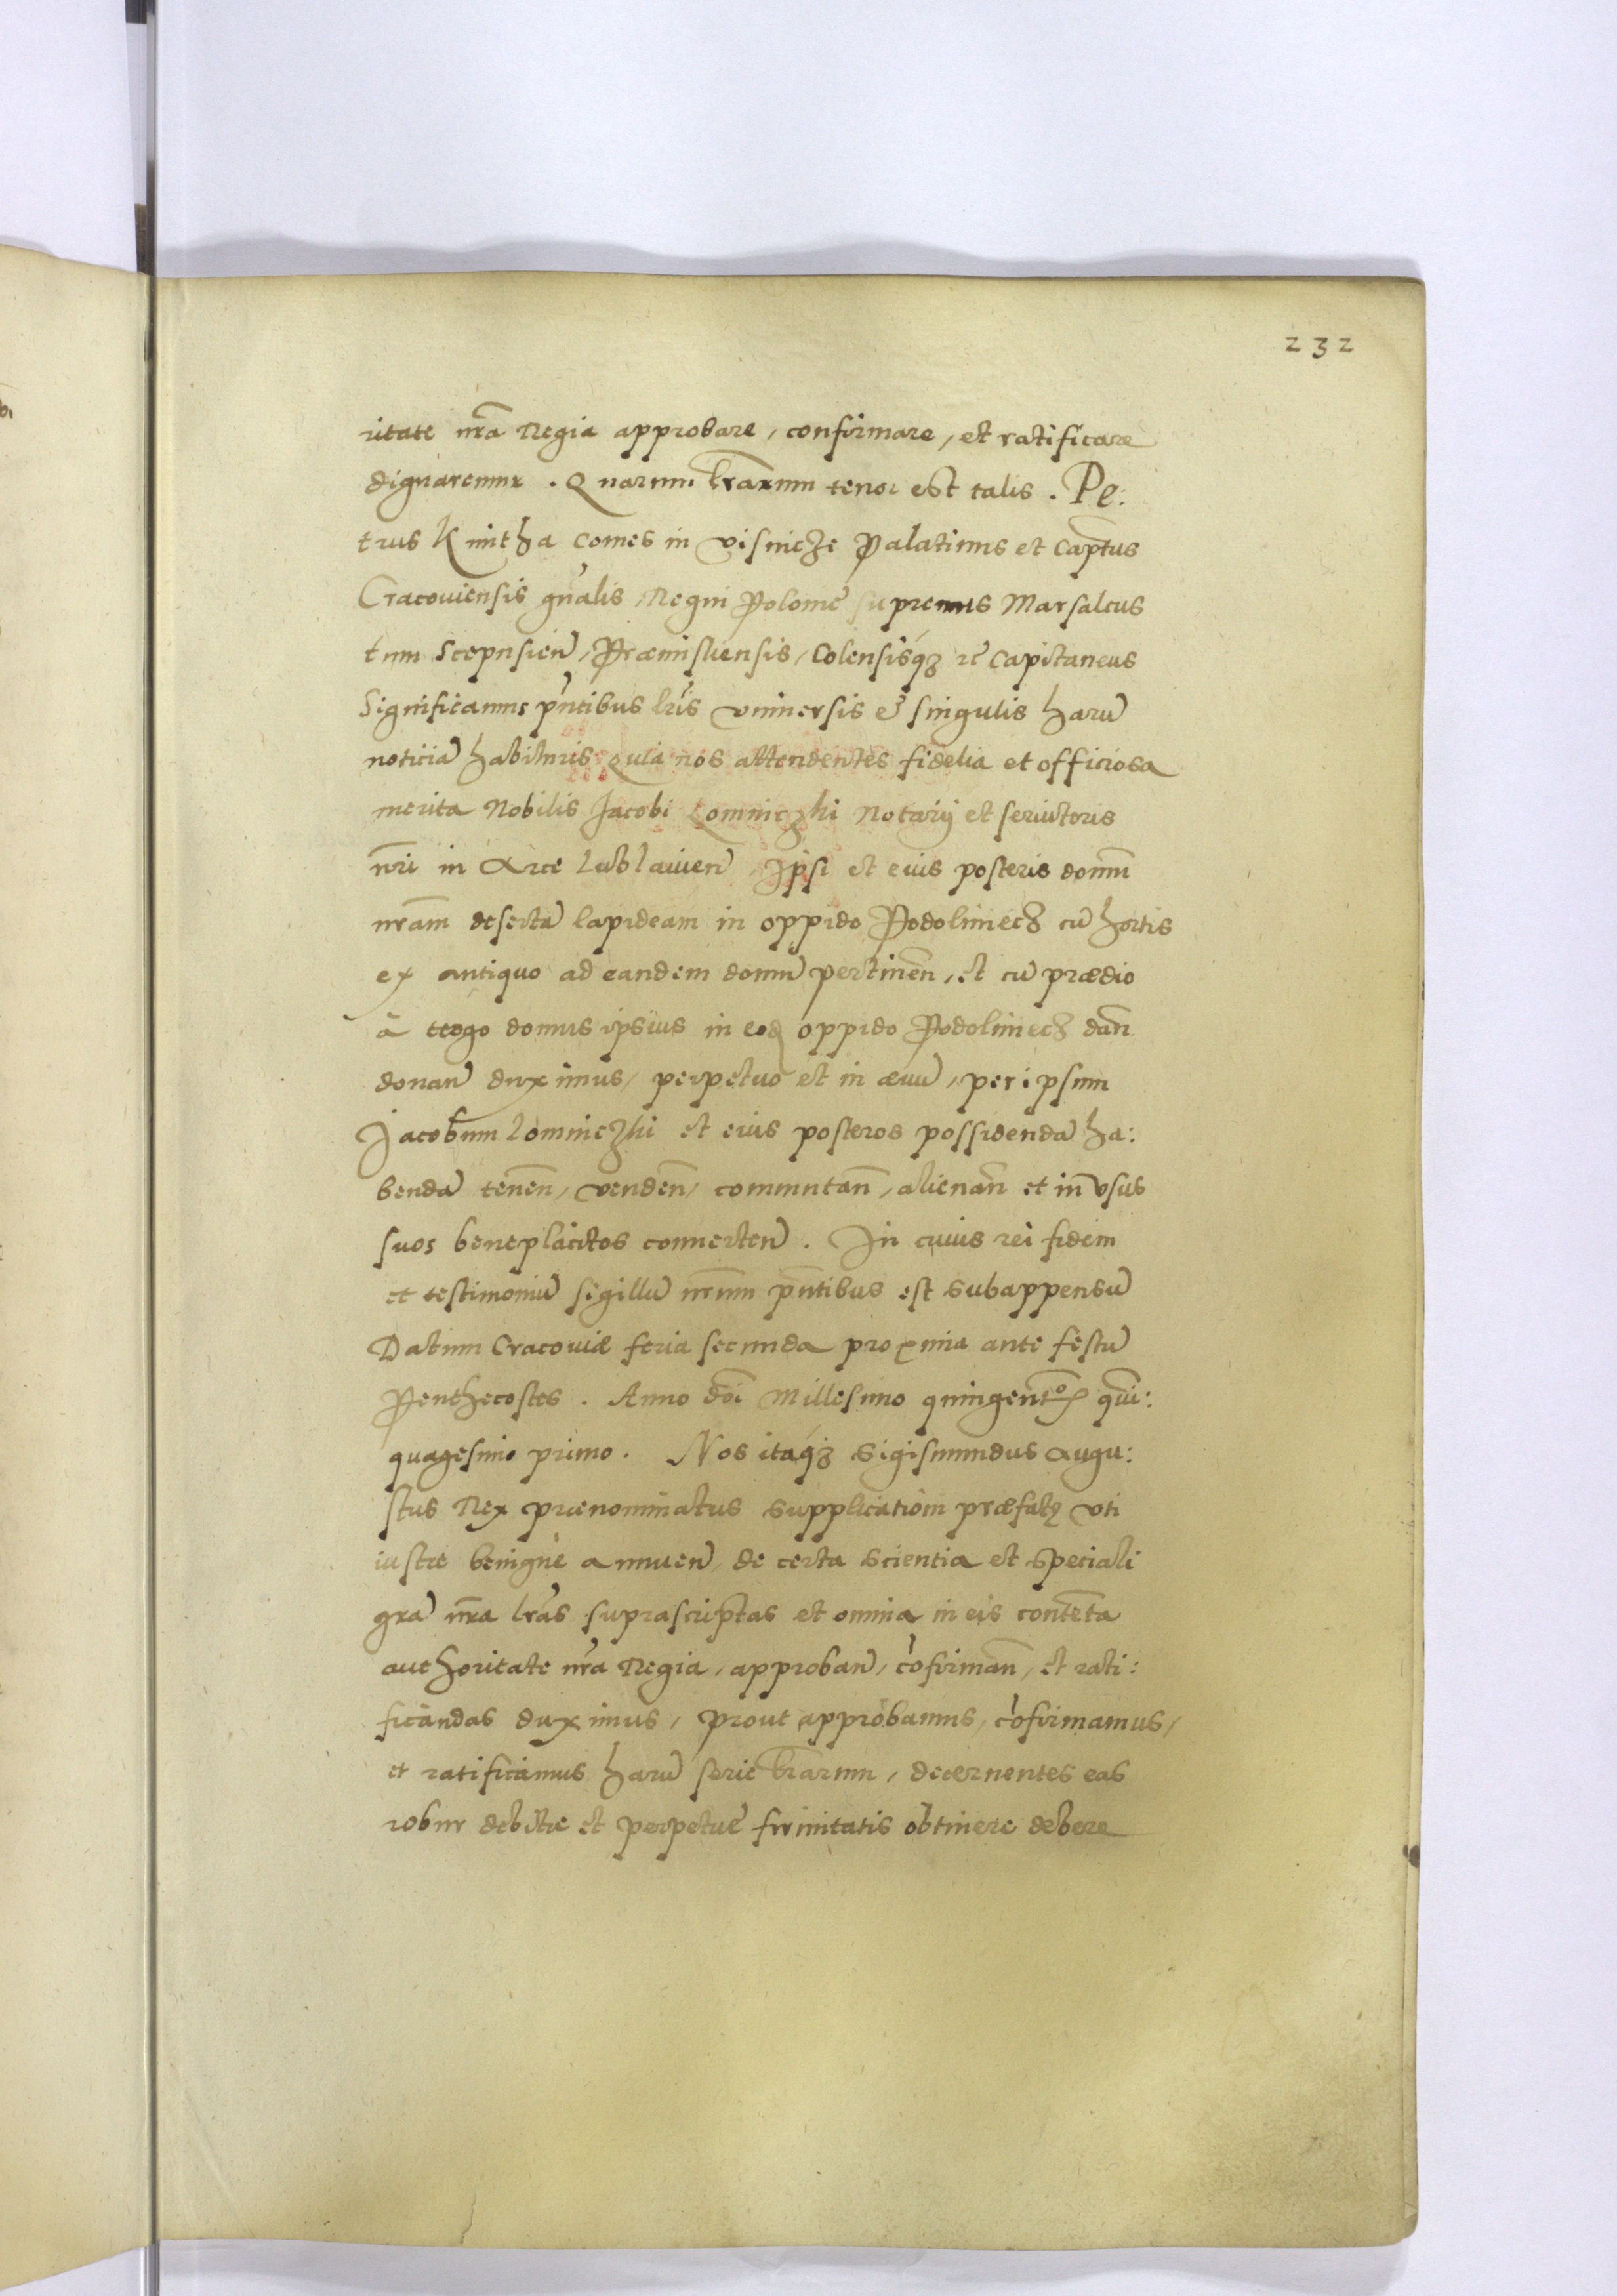 232
ritate nrã Regia approbare, confirmare, et ratificare
dignaremur. Quarum lrarum tenor est talis. Pe:
trus Kmitha Comes in Visnicze Palatinus et Capitus
Cracouiensis gñalis, Regni Polonie supremus Marsalcus
tum Scepusien, Præmisliensis, Colensisq3 &c Capitaneus
Significamus pñtibus lris vniuersis et singulis harũ
noticiã habituris Quia nos attendentes fidelia et officiosa
merita Nobilis Jacobi Lomniczhi Notarij et seruitoris
nri in Arce Lublauien, Ipsi et eius posteris domũ
nram desertã lapideam in oppido Podoliniecz cũ hortis
ex antiquo ad eandem domũ pertinen, et cũ prædio
à tergo domus ipsius in eod oppido Podoliniecz dan
donan duximus, perpetuo et in æuũ, per ipsum
Jacobum Lomniczhi et eius posteros possidendã ha:
bendã tenen, venden, commutan, alienan et in vsus
suos beneplacitos conuerten. In cuius rei fidem
et testimoniũ sigillũ nrum pñtibus est subappensũ
Datum Cracouiæ feria secunda proxima ante festũ
Penthecostes. Anno dñi Millesimo quingentoᵐ quin:
quagesimo primo. Nos itaq3 Sigismundus Augu:
stus Rex prænominatus supplicatioñi præfatę vti
iustæ benignè annuen, de certa scientia et speciali
gra nra lras suprascriptas et omnia in eis contenta
authoritate nra Regia, approban, cõfirman, et rati:
ficandas duximus, prout approbamus, cõfirmamus,
et ratificamus harũ serie lrarum, decernentes eas
robur debitæ et perpetuę firmitatis obtinere debere